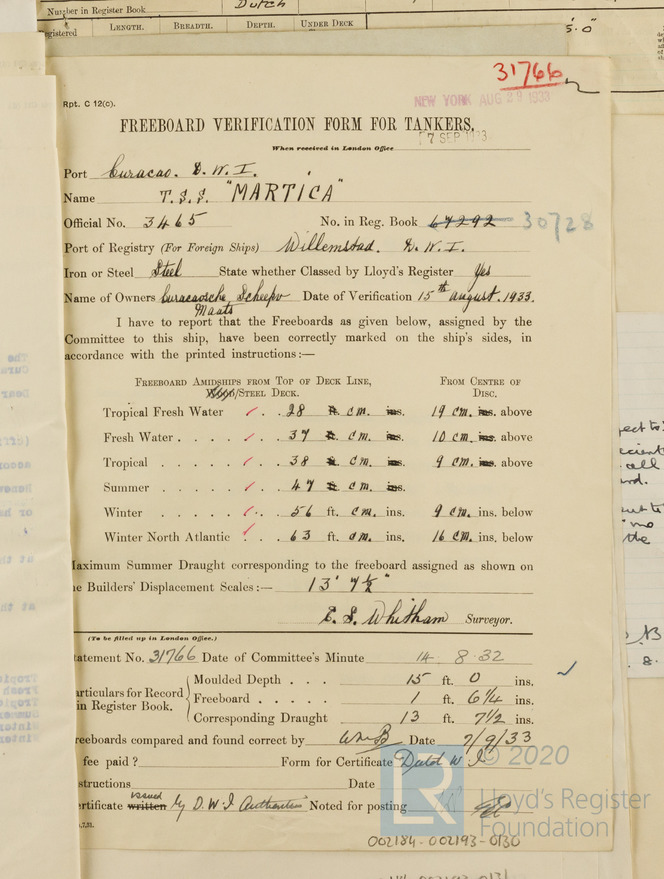 Number in Register Book
Dutch
Registered LENGTH. BREADTH. DEPTH. UNDER DECK
5'.0"
31766
Rpt. C 12(c).
NEW YORK AUG 29 1933
FREEBOARD VERIFICATION FORM FOR TANKERS.
7 SEP 1933
When received in London Office
Port Curacao. D.W.I.
Name T.S.S. "MARTICA"
Official No. 3465 No. in Reg. Book 67292 30728
Port of Registry (For Foreign Ships) Willemstad. D.W.I.
Iron or Steel Steel State whether Classed by Lloyd's Register Yes
Name of Owners Curacaosche Scheepv Date of Verification 15th August. 1933.
Maats
I have to report that the Freeboards as given below, assigned by the
Committee to this ship, have been correctly marked on the ship's sides, in
accordance with the printed instructions:—
FREEBOARD AMIDSHIPS FROM TOP OF DECK LINE, FROM CENTRE OF
/STEEL DECK. DISC.
Tropical Fresh Water ✓ . . 28 ft. cm. ins. 19 cm. ins. above
Fresh Water . . . . ✓ . . 37 ft. cm. ins. 10 cm. ins. above
Tropical . . . . . ✓ . . 38 ft. cm. ins. 9 cm. ins. above
Summer . . . . . ✓ . . 47 ft. cm. ins.
Winter . . . . . ✓ . . 56 ft. cm. ins. 9 cm. ins. below
Winter North Atlantic ✓ . . 63 ft. cm. ins. 16 cm. ins. below
Maximum Summer Draught corresponding to the freeboard assigned as shown on
the Builders' Displacement Scales:— 13' 7½"
E. S. Whitham Surveyor.
(To be filled up in London Office.)
Statement No. 31766 Date of Committee's Minute 14. 8.32
Particulars for Record in Register Book.
Moulded Depth . . . 15 ft. 0 ins.
Freeboard . . . . . 1 ft. 6¼ ins.
Corresponding Draught 13 ft. 7½ ins.
Freeboards compared and found correct by Date 7/9/33
fee paid? Form for Certificate Dutch W I
Instructions Date
issued
Certificate written by D.W.I Authorities Noted for posting
.7,31.
LR © 2020
Lloyd's Register
Foundation
002184-002193-0130